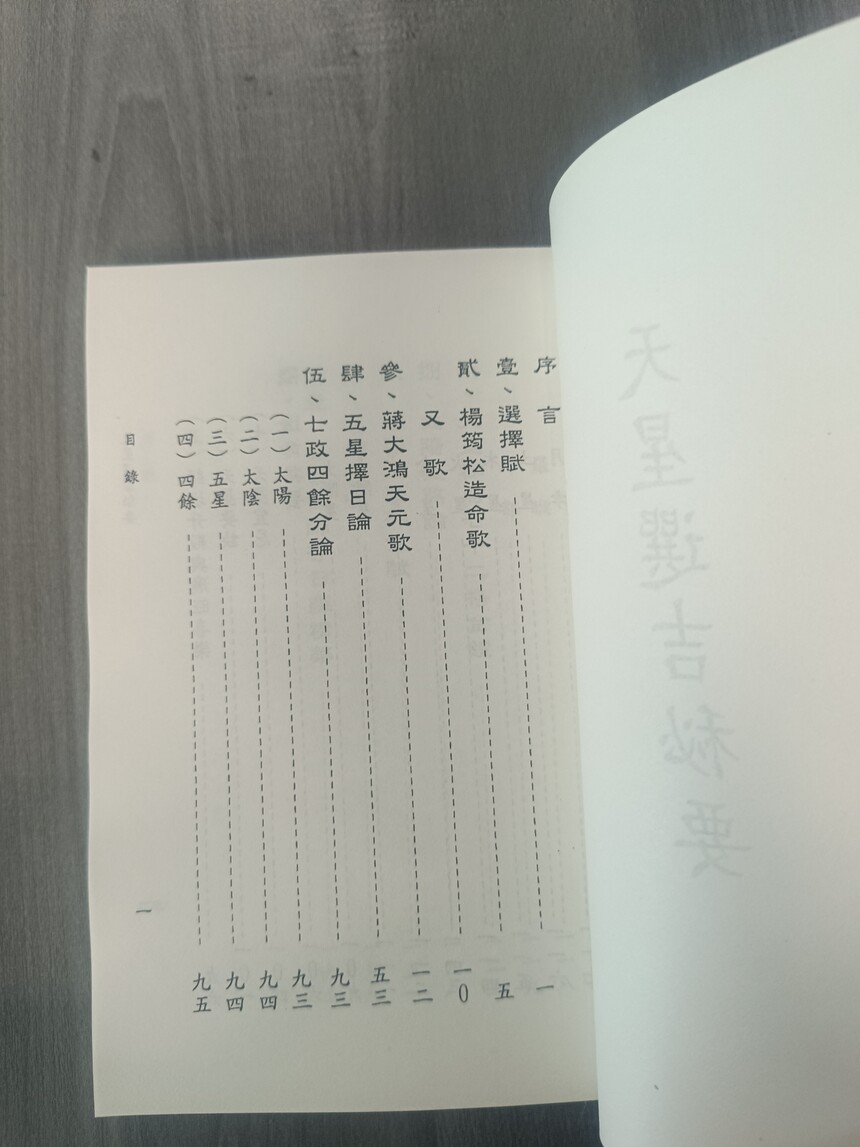 天星選吉秘要
序言
壹、選擇賦 一
貳、楊筠松造命歌 五
又歌 一0
參、蔣大鴻天元歌 一二
肆、五星擇日論 五三
伍、七政四餘分論 九三
(一)太陽 九三
(二)太陰 九四
(三)五星 九四
(四)四餘 九五
目錄
一